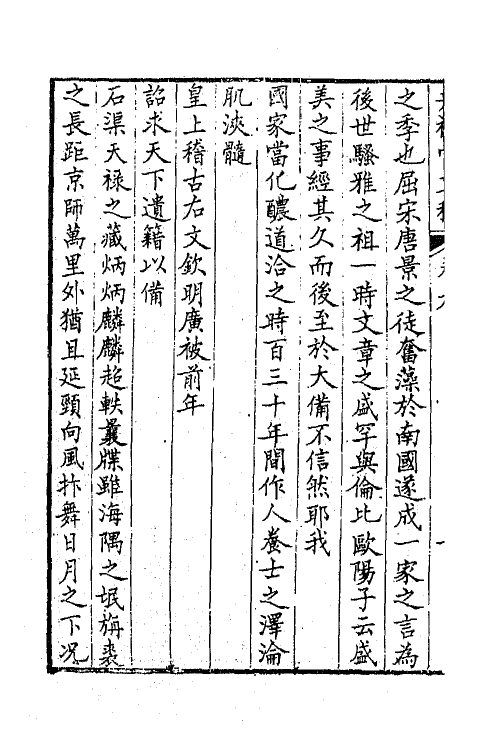 之季也屈宋唐景之徒奮藻於南國遂成一家之言為
後世騷雅之祖一時文章之盛罕與倫比歐陽子云盛
美之事經其久而後至於大備不信然耶我
國家當化醲道洽之時百三十年間作人養士之澤淪
肌浹髓
皇上稽古右文欽明廣被前年
詔求天下遺籍以備
石渠天祿之藏炳炳麟麟超軼曩牒雖海隅之氓旃裘
之長距京師萬里外猶且延頸向風抃舞日月之下况